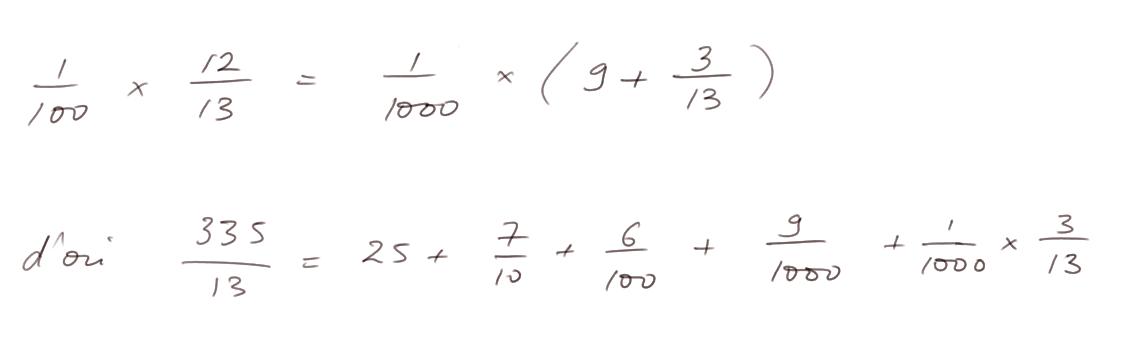 1/100 × 12/13 = 1/1000 × (9 + 3/13)
d'où 335/13 = 25 + 7/10 + 6/100 + 9/1000 + 1/1000 × 3/13